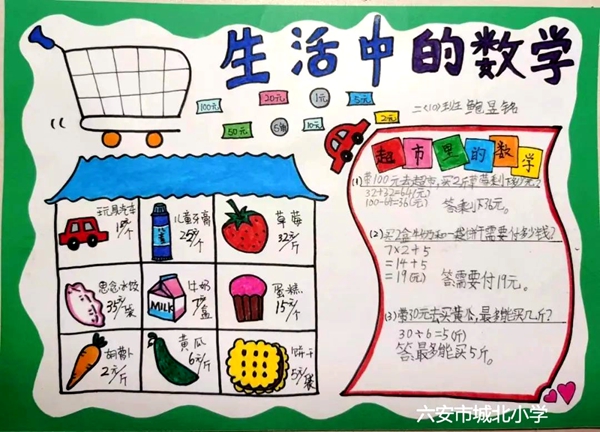 生活中的数学
100元
20元
1元
5元
50元
5角
10元
2元
二(10)班 鲍昱铭
玩具汽车
儿童牙膏
25元/个
草莓
32元/斤
思念水饺
35元/袋
牛奶
MILK
7元/盒
蛋糕
15元/个
胡萝卜
2元/斤
黄瓜
6元/斤
饼干
5元/袋
超市里的数学
(1)带100元去超市,买2斤草莓剩下多少元?
32+32=64(元)
100-64=36(元) 答:剩下36元。
(2)买2盒牛奶和一袋饼干需要付多少钱?
7×2+5
=14+5
=19(元) 答:需要付19元。
(3)带30元去买黄瓜,最多能买几斤?
30÷6=5(斤)
答:最多能买5斤。
六安市城北小学